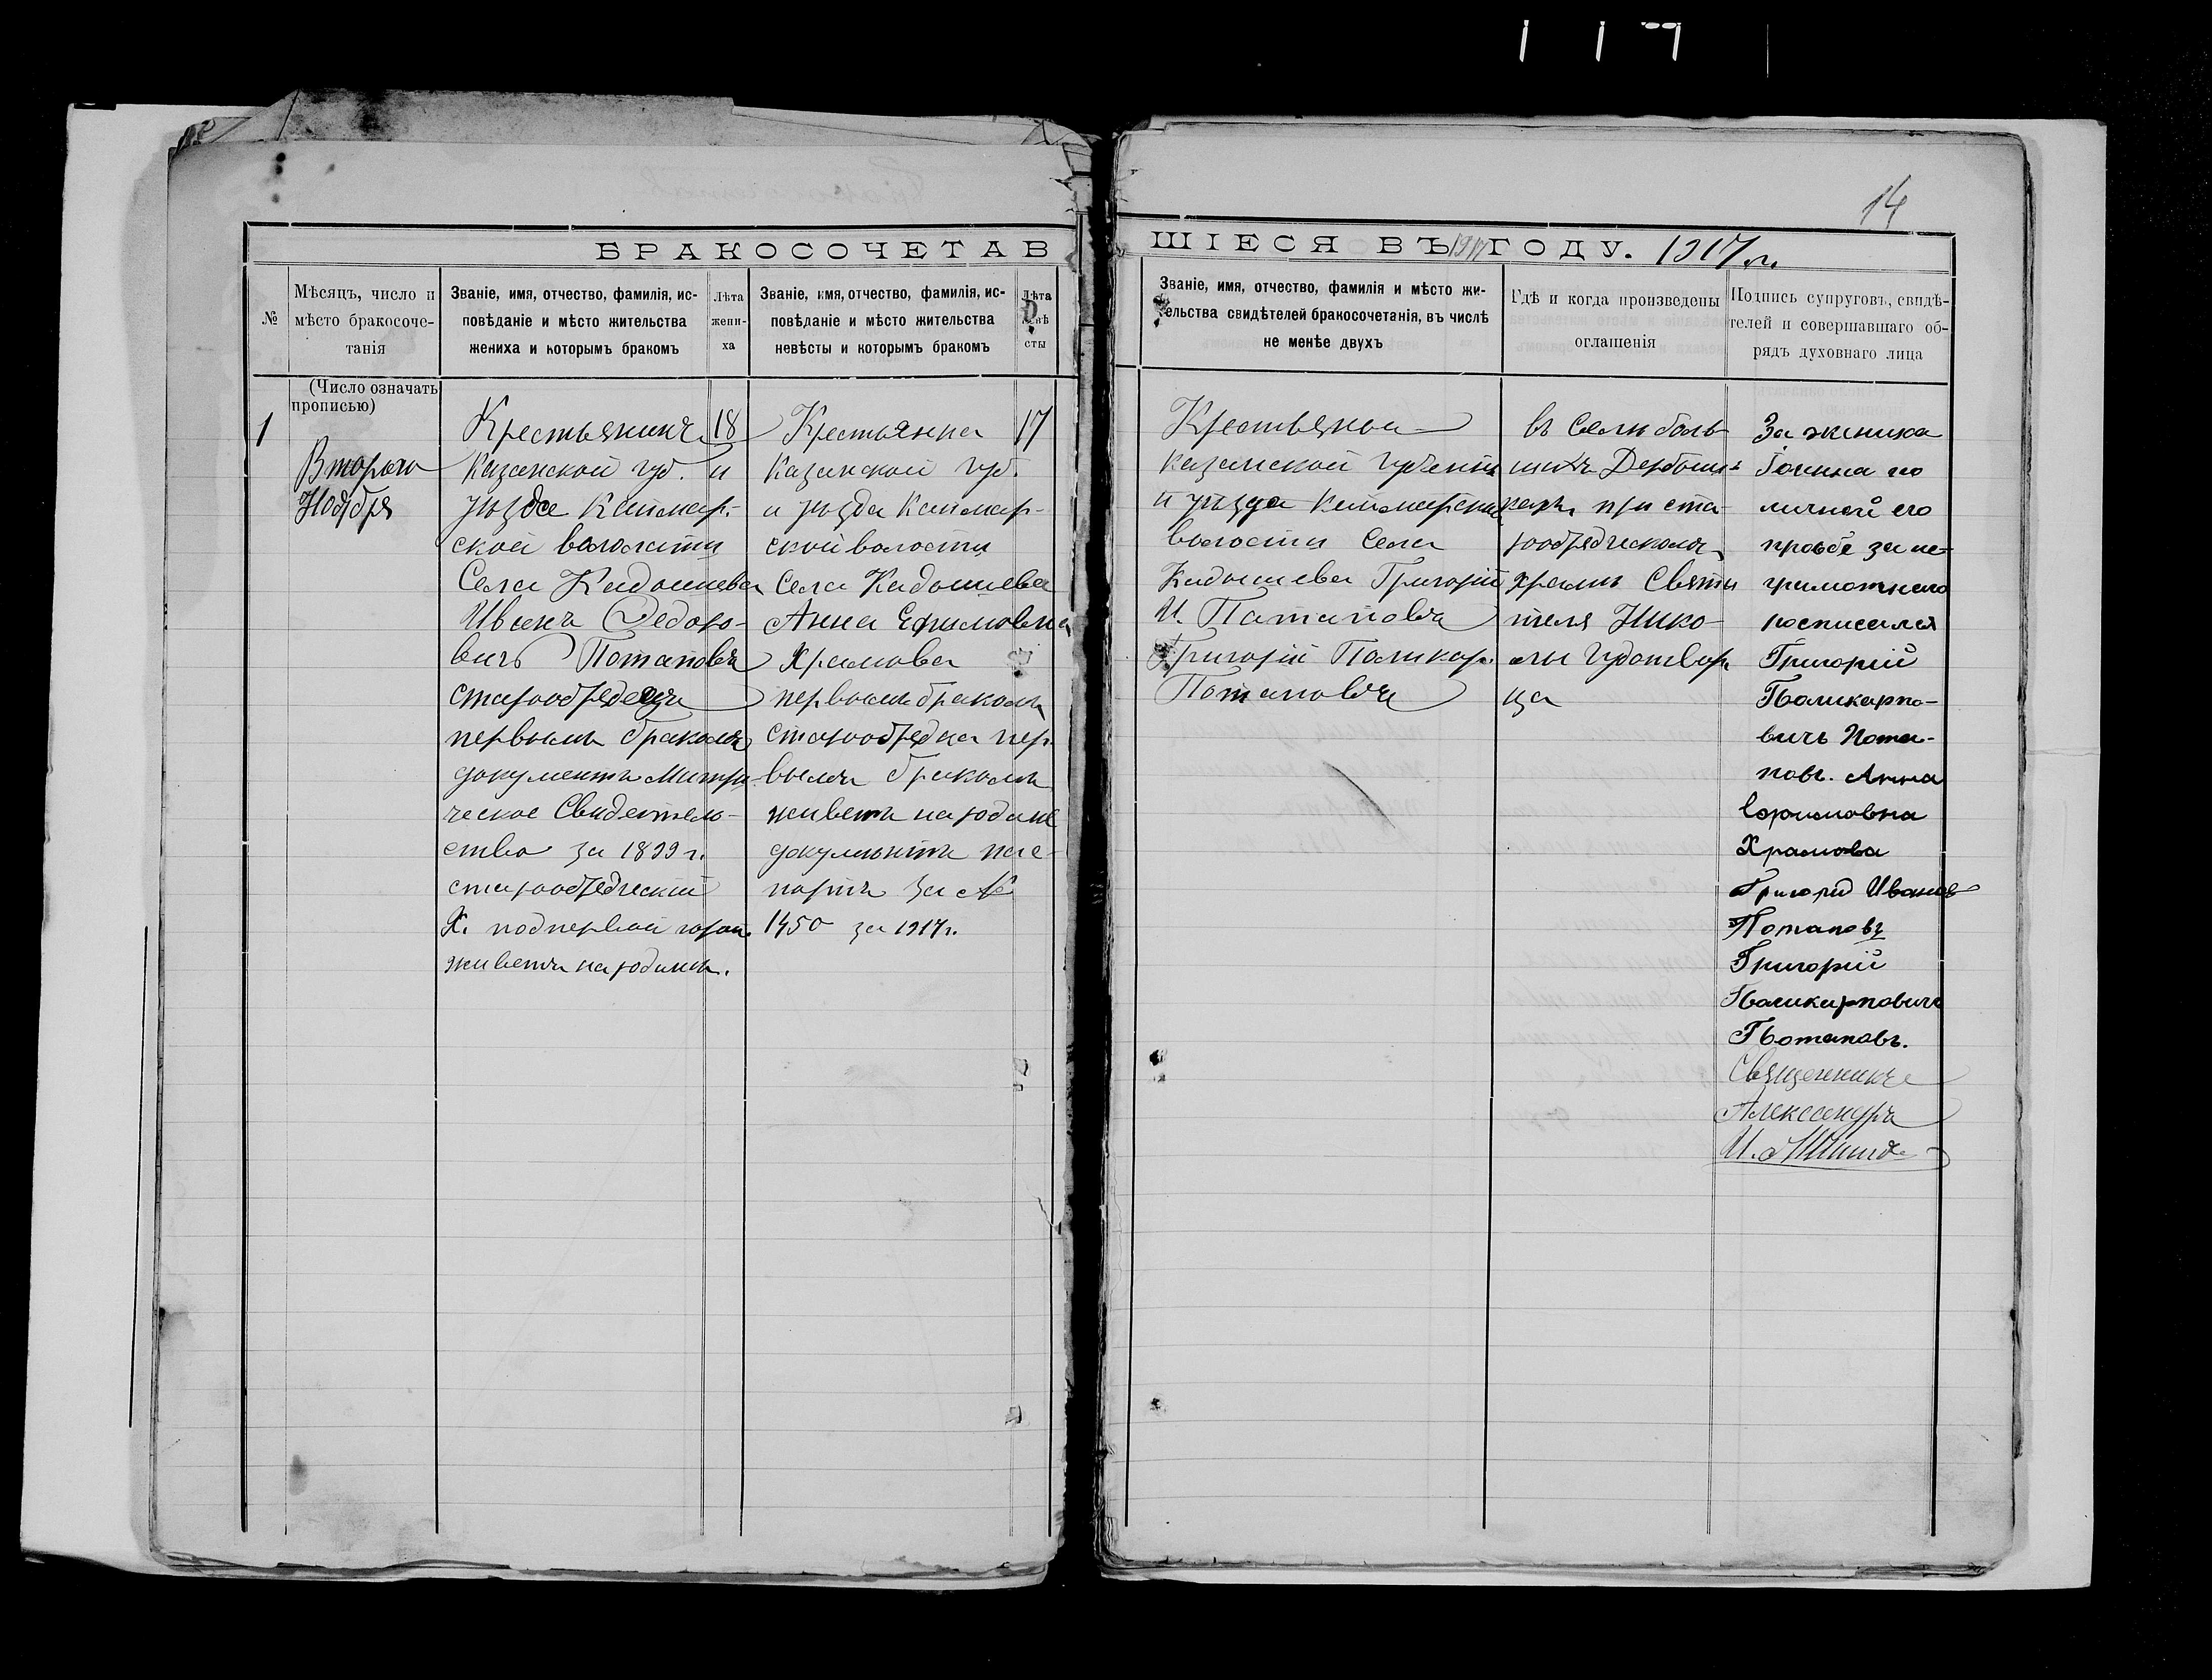 14
БРАКОСОЧЕТАВ
ШІЕСЯ ВЪ 1917 ГОДУ. 1917 г.
№
Мѣсяцъ, число и
мѣсто бракосоче-
танія
Званіе, имя, отчество, фамилія, ис-
повѣданіе и мѣсто жительства
жениха и которымъ бракомъ
Лѣта
жени-
ха
Званіе, имя, отчество, фамилія, ис-
повѣданіе и мѣсто жительства
невѣсты и которымъ бракомъ
Лѣта
невѣ
сты
Званіе, имя, отчество, фамилія и мѣсто жи-
тельства свидѣтелей бракосочетанія, въ числѣ
не менѣе двухъ
Гдѣ и когда произведены
оглашенія
Подпись супруговъ, свидѣ-
телей и совершавшаго об-
рядъ духовнаго лица
(Число означать
прописью)
1
Второго
Ноября
Крестьянинъ
Казанской губ. и
уѣзда Каймар-
ской волости
Села Кадышева
Иванъ Федоро-
вичъ Потаповъ
старообрядецъ
первымъ бракомъ
документъ Метри
ческое Свидетель-
ство за 1899 г.
старообрядческий
Х.
живетъ на родинѣ.
18
Крестьянка
Казанской губ.
и уѣзда Каймар-
ской волости
Села Кадышева
Анна Ефимовна
Храмова
первымъ бракомъ
старообрядка пер-
вымъ бракомъ
живетъ на родинѣ
документъ пас-
портъ за №
1450 за 1917 г.
17
Крестьяне
Казанской Губерніи
и уѣзда Каймарской
волости Села
Кадышева Григорій
И. Патаповъ
Григорій Поликар.
Потаповъ
въ Селѣ боль-
шихъ Дербыш-
кахъ при ста-
рообрядческомъ
храмѣ Святи
теля Нико-
лы Чудотвор
ца
За жениха
Іоанна по
личной его
прозбе за не-
грамотнаго
росписался
Григорій
Поликарпо-
вичъ Пота-
повъ. Анна
Ефимовна
Храмова
Григорій Иванов
Потаповъ
Григорій
Поликарповичъ
Потаповъ.
Священникъ
Александръ